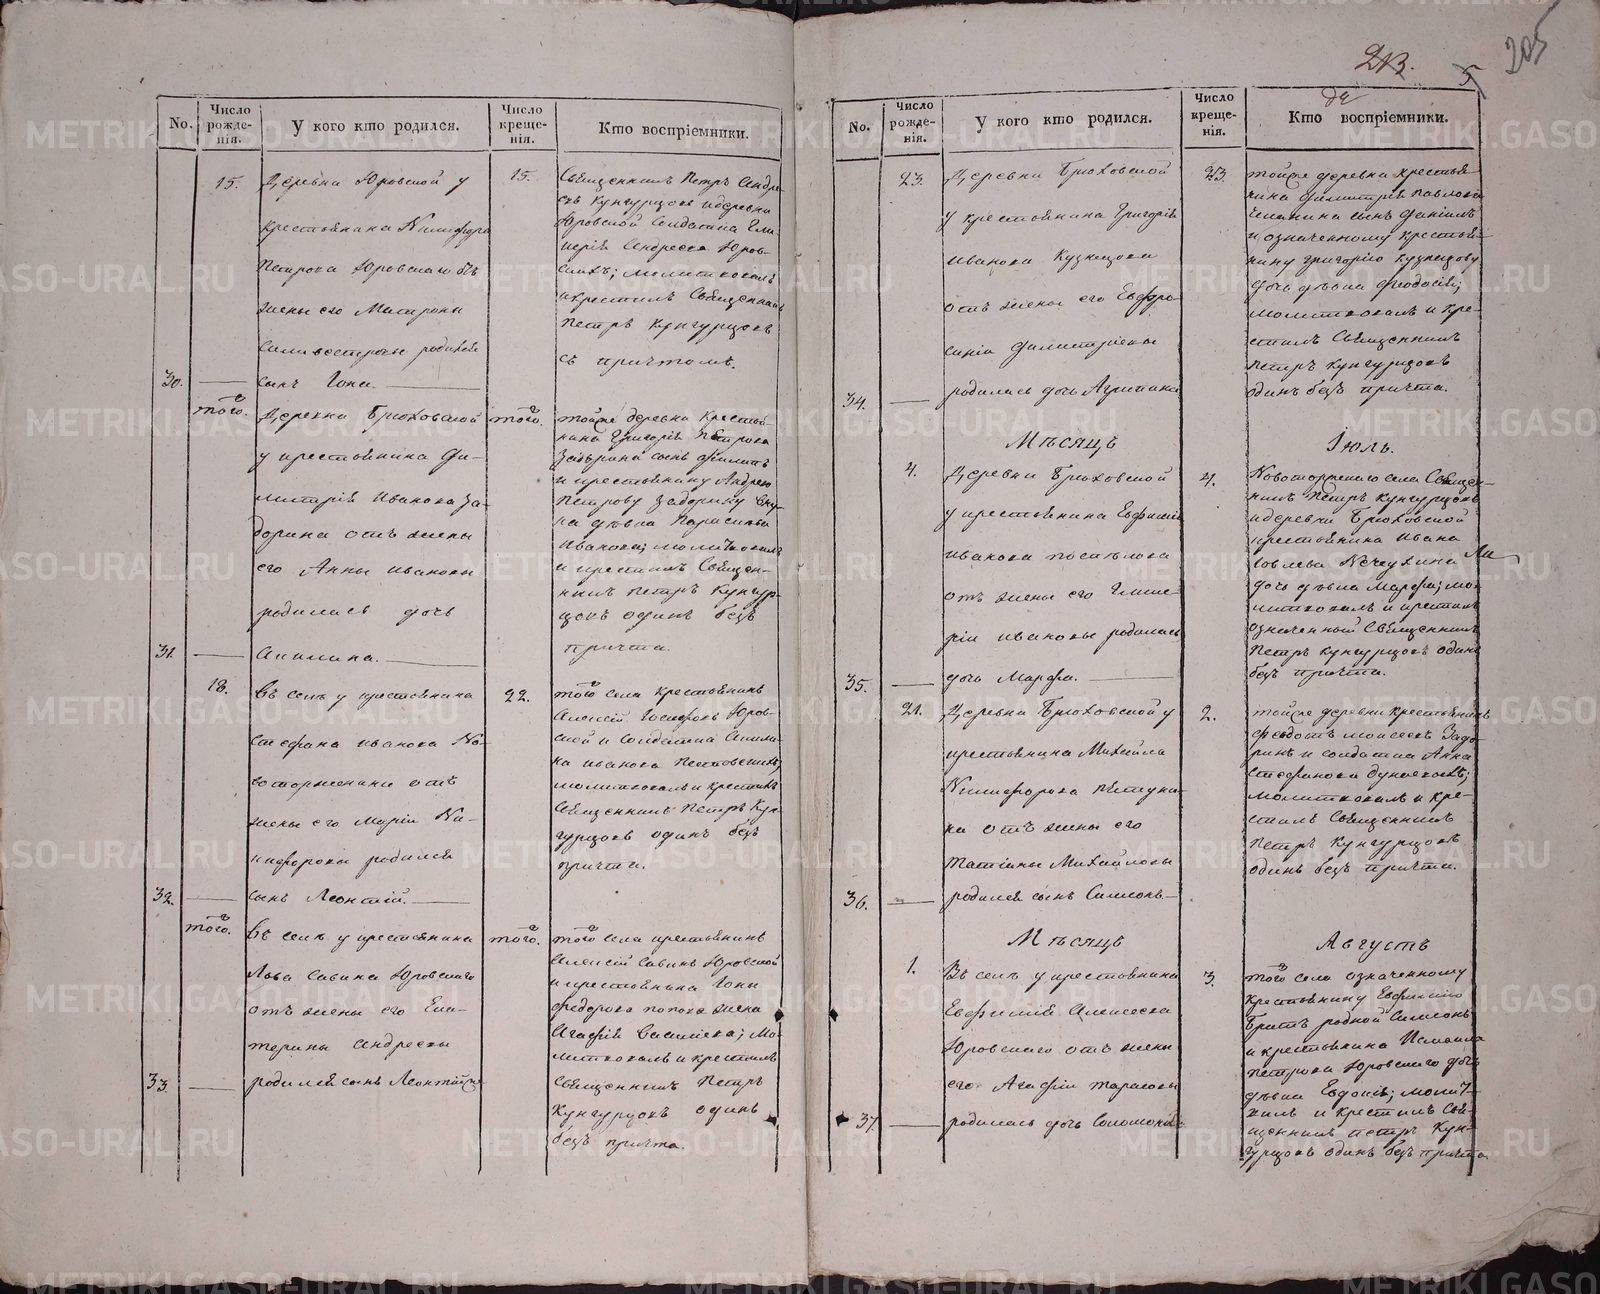 213.
205
5
No.
Число рожде-нія.
У кого кто родился.
Число креще-нія.
Кто воспріемники.
15.
Деревни Юровской у
крестьянина Никифора
Петрова Юровскаго отъ
жены его Матроны
Селивестровы родился
30.
сынъ Іона.
15.
Священникъ Петръ Андре-
евъ Кунгурцовъ и деревни
Юровской солдатка Гли-
керія Андреева Юров-
скихъ; молитвовалъ
и крестилъ Священникъ
Петръ Кунгурцовъ
съ причтомъ.
того.
Деревни Брюховской
у крестьянина Ди-
митрія Иванова За-
дорина отъ жены
его Анны Ивановы
родилась дочь
31.
Акилина.
того.
тойже деревни Крестья-
нина Григорія Петрова
Задорина сынъ Филипъ
и крестьянину Андрею
Петрову Задорину
дѣвка
Иванова; молитвовалъ
и крестилъ Священ-
никъ Петръ Кунгур-
цовъ одинъ безъ
причта.
18.
Въ селѣ у крестьянина
Стефана Иванова Но-
воторженина отъ
жены его Маріи Ни-
кифоровы родился
32.
сынъ Леонтій.
22.
того села крестьянинъ
Алексій Іосифовъ Юров-
ской и солдатка Акили-
на Иванова
молитвовалъ и крестилъ
Священникъ Петръ Кун-
гурцовъ одинъ безъ
причта.
того.
Въ селѣ у крестьянина
Льва Савина Юровскаго
отъ жены его Ека-
терины Андреевы
33.
родился сынъ Леонтійже
того.
того села крестьянинъ
Алексій Савинъ Юровской
и крестьянина Іоны
Федорова Попова жена
Агафія Василева; мо-
литвовалъ и крестилъ
Священникъ Петръ
Кунгурцовъ одинъ
безъ причта.
No.
Число рожде-нія.
У кого кто родился.
Число креще-нія.
Кто воспріемники.
23.
Деревни Брюховской
у крестьянина Григорія
Иванова Кузнецова
отъ жены его Евфро-
синіи Димитріевы
34.
родилась дочь Агрипина
23.
тойже деревни крестья-
нина Димитрія Павлова
сынъ Даніилъ
и означенному крестья-
нину Григорію Кузнецову
дочь дѣвка Феодосія;
молитвовалъ и кре-
стилъ Священникъ
Петръ Кунгурцовъ
одинъ безъ причта.
Мѣсяцъ
Іюль.
4.
Деревни Брюховской
у крестьянина Евфимія
Иванова Поспѣлова
отъ жены его Глике-
ріи Ивановы родилась
35.
дочь Марфа.
4.
Новоторжскаго села Священ-
никъ Петръ Кунгурцовъ
и деревни Брюховской
крестьянина Ивана
Яковлева Кечухина
дочь дѣвка Марфа; мо-
литвовалъ и крестилъ
означенный Священникъ
Петръ Кунгурцовъ одинъ
безъ причта.
21.
Деревни Брюховской у
крестьянина Михайла
Никифорова Пѣтухи-
на отъ жены его
Татіаны Михайловы
36.
родился сынъ Симеонъ.
2.
тойже деревни крестьянинъ
Федотъ Моисеевъ Задо-
ринъ и солдатка Анна
Стефанова
молитвовалъ и кре-
стилъ Священникъ
Петръ Кунгурцовъ
одинъ безъ причта.
Мѣсяцъ
Августъ
1.
Въ селѣ у крестьянина
Евфимія Алексеева
Юровскаго отъ жены
его Агафіи Тарасовы
37.
родилась дочь Соломонія
3.
того села означенному
крестьянину Евфимію
братъ родной Симеонъ
и крестьянина Исмаила
Петрова Юровскаго дочь
дѣвка Евдокія; молит-
валъ и крестилъ Свя-
щенникъ Петръ Кун-
гурцовъ одинъ безъ причта